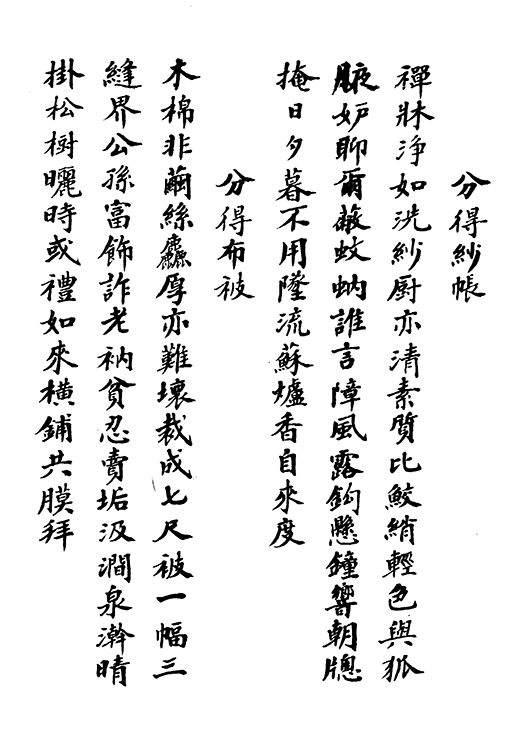 分得紗帳
禪牀淨如洗紗厨亦清素質比鮫綃輕色與狐
腋妒聊爾蔽蚊蚋誰言障風露鈎懸鐘響朝牕
掩日夕暮不用墮流蘇爐香自來度
分得布被
木棉非繭絲麤厚亦難壞裁成七尺被一幅三
縫界公孫富飾詐老衲貧忍賣垢汲澗泉澣晴
掛松樹曬時或禮如來橫鋪共膜拜